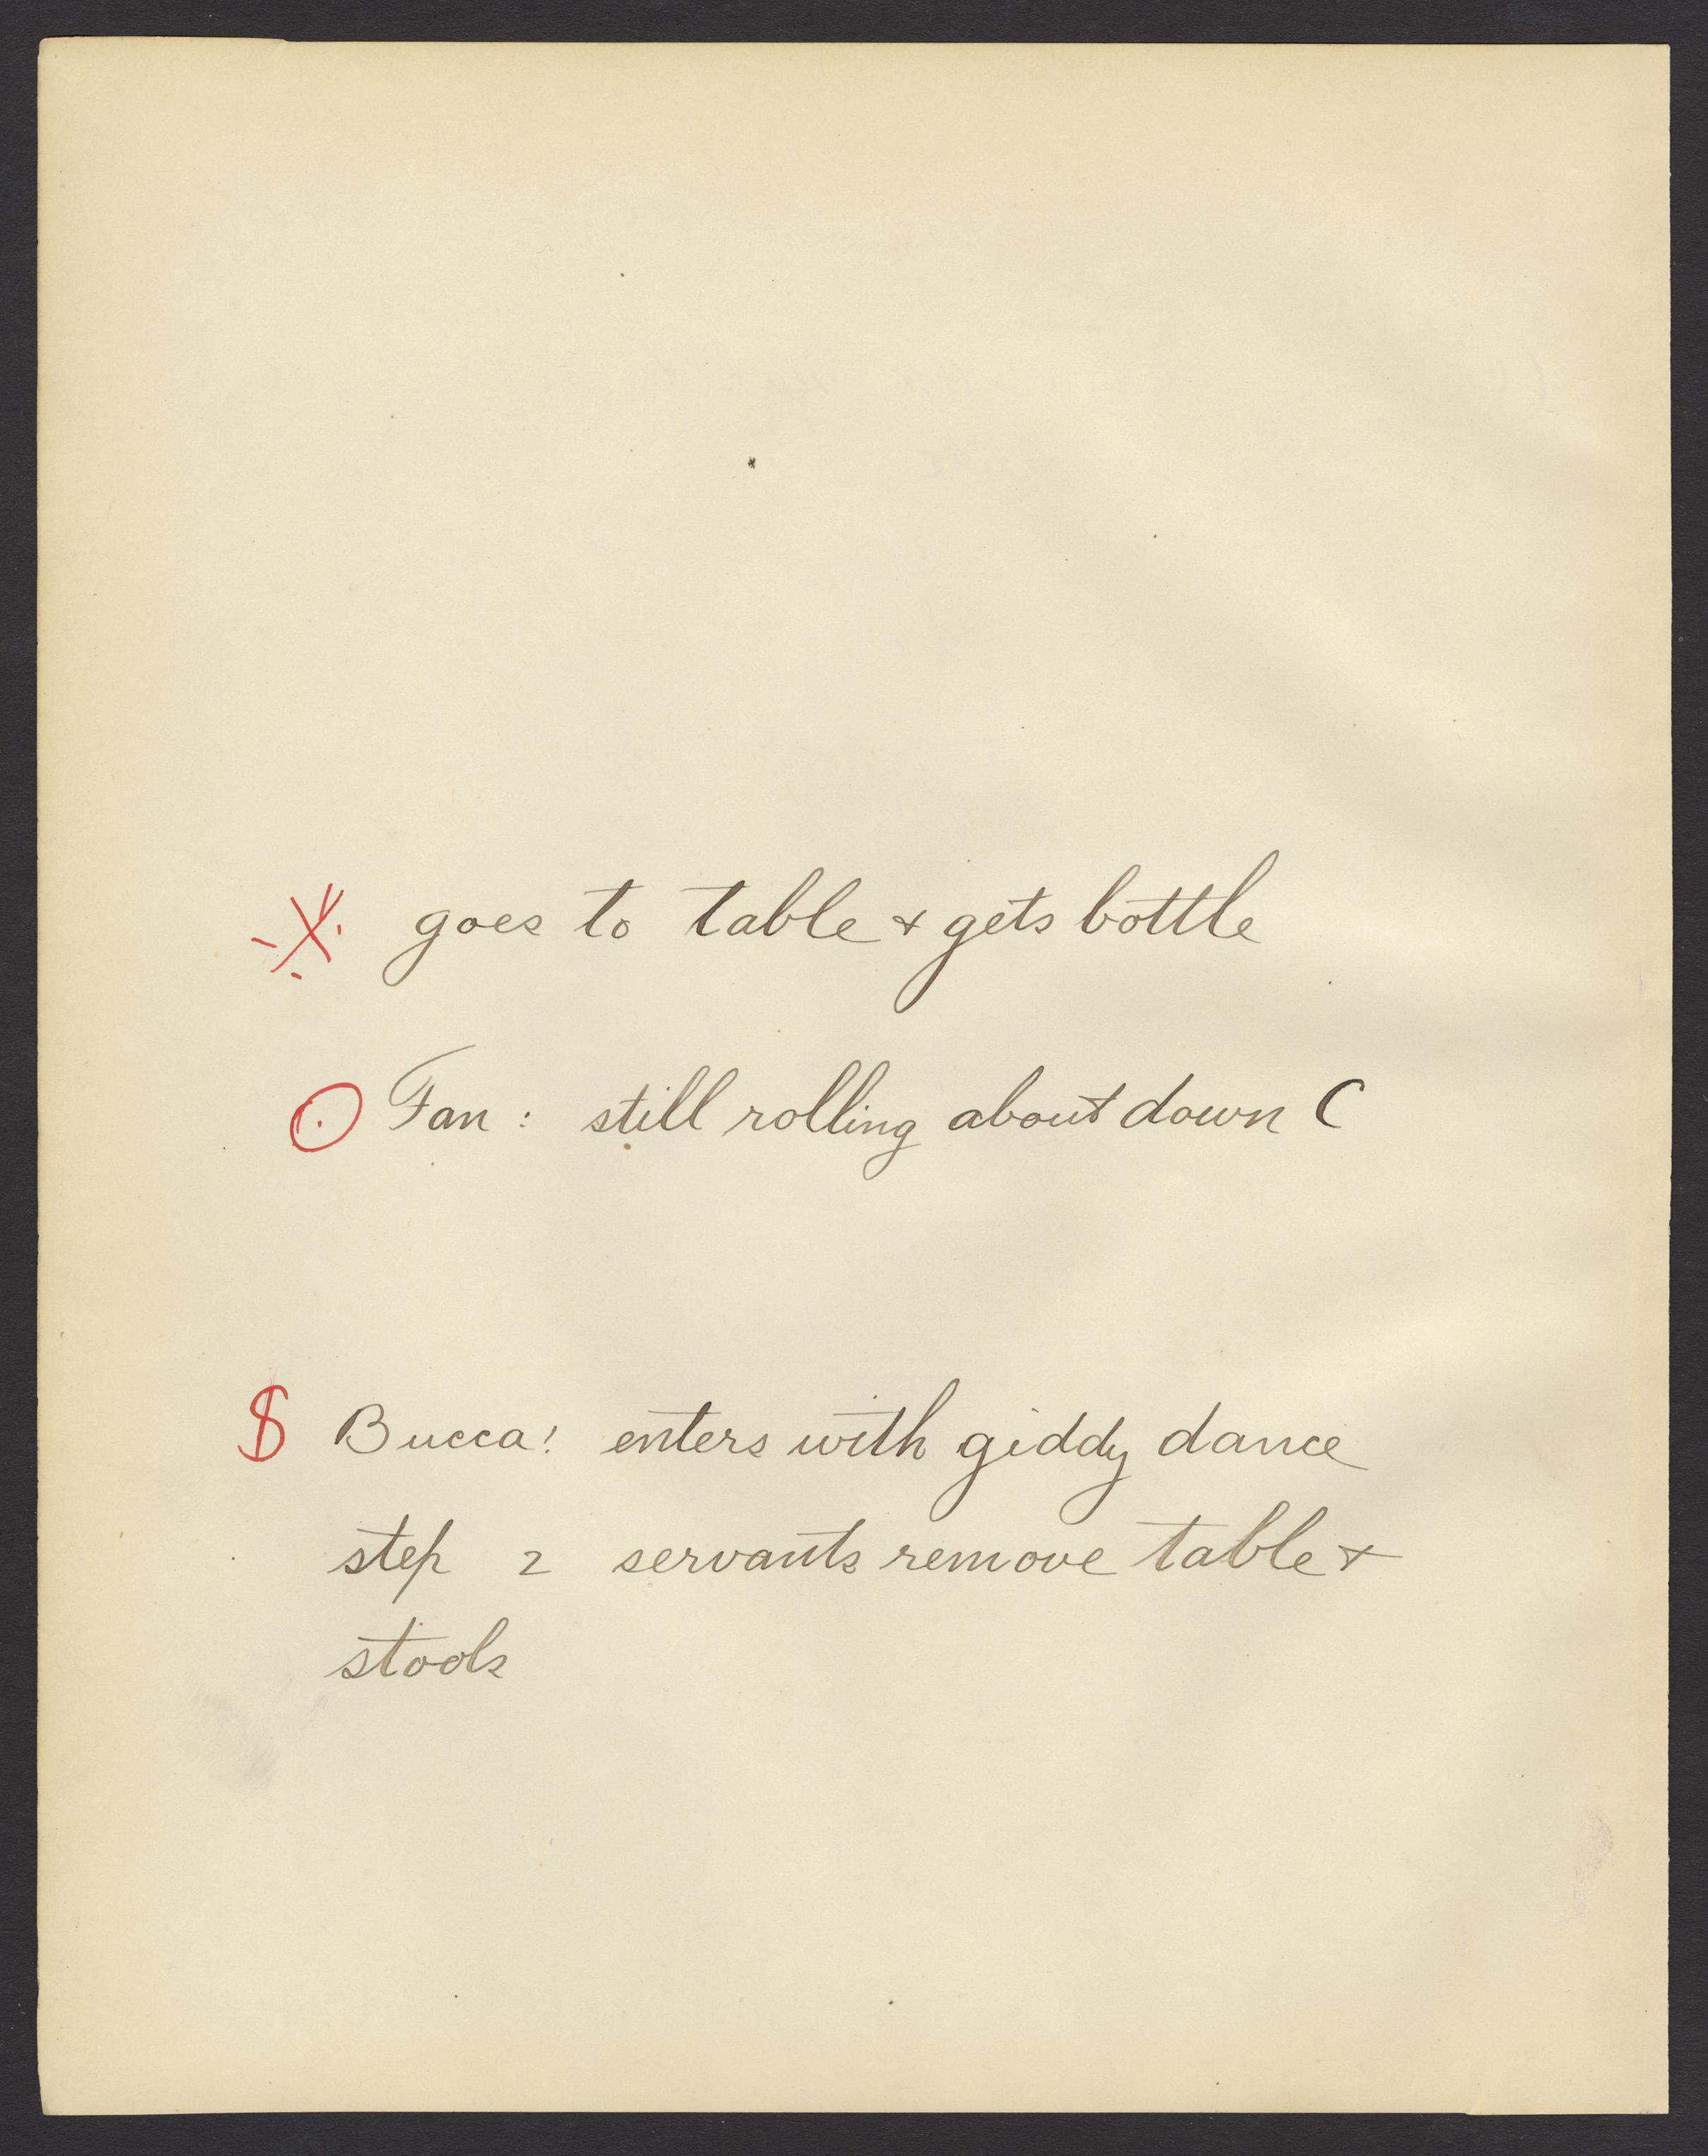 ※ goes to table & gets bottle
⊙ Fan: still rolling about down C
$ Bucca: enters with giddy dance
step 2 servants remove table &
stools